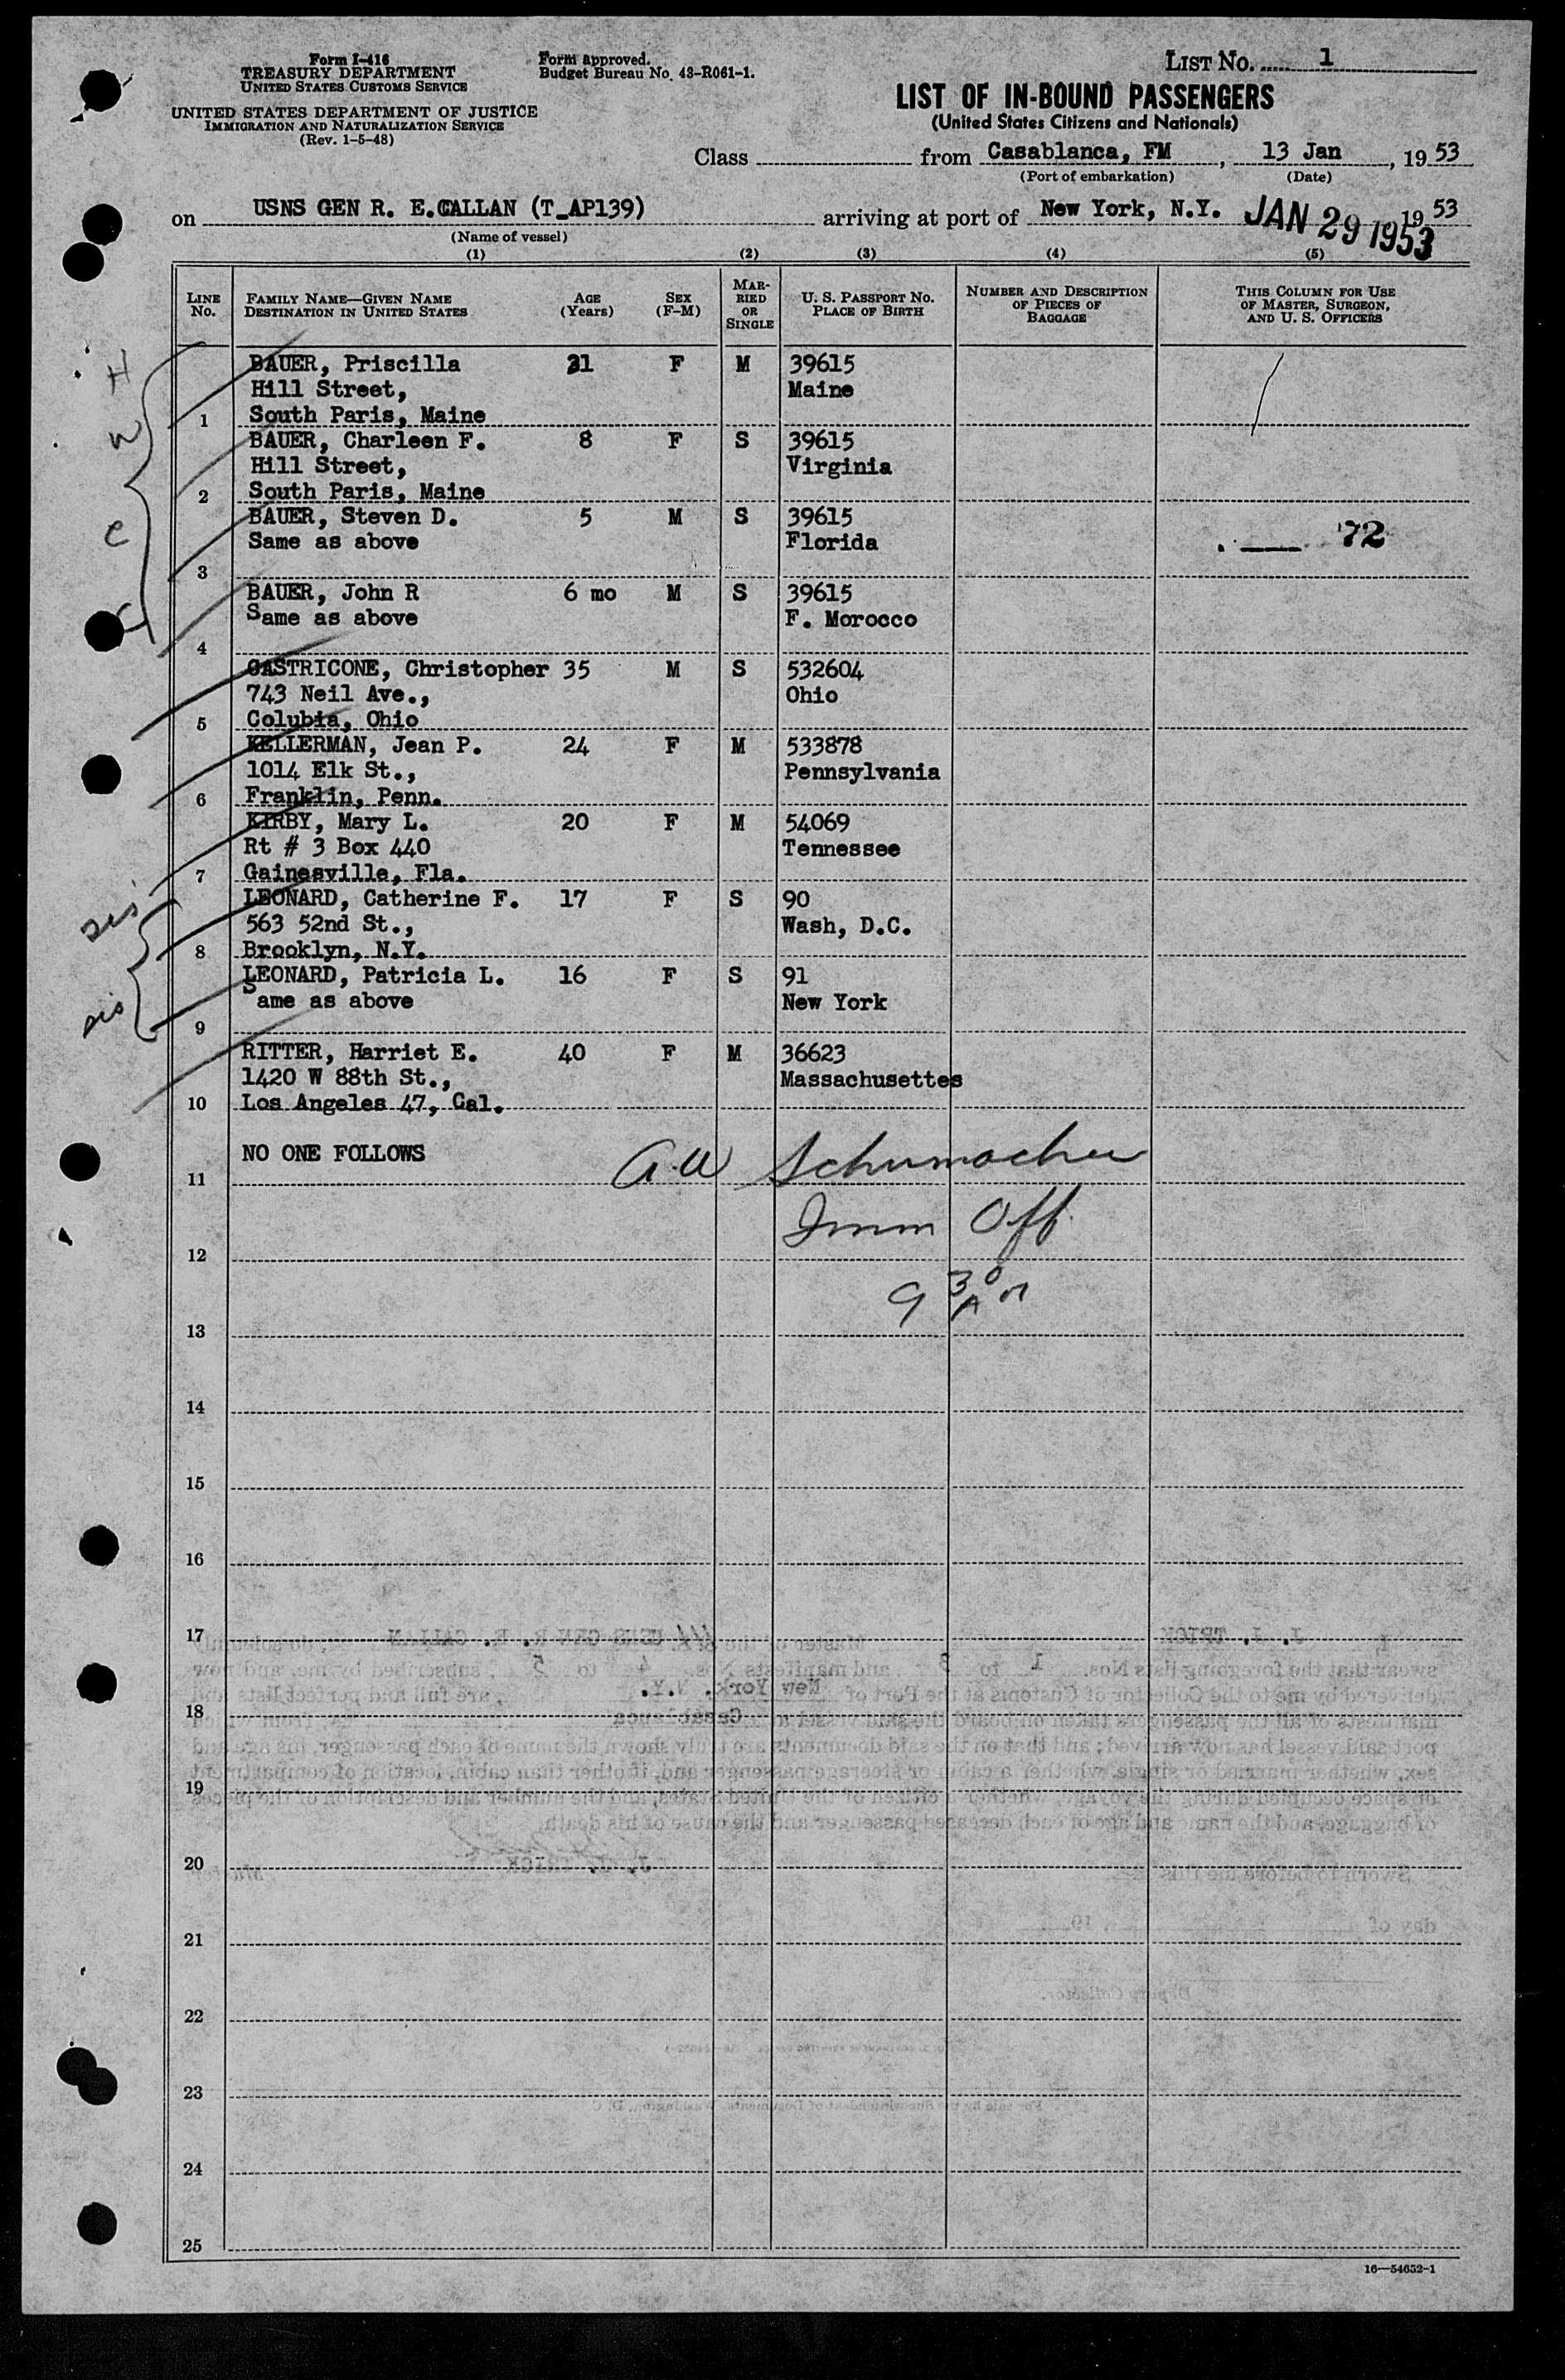 Form I-416
TREASURY DEPARTMENT
UNITED STATES CUSTOMS SERVICE
UNITED STATES DEPARTMENT OF JUSTICE
IMMIGRATION AND NATURALIZATION SERVICE
(Rev. 1-5-48)
Form approved.
Budget Bureau No. 43-R061-1.
LIST No. 1
LIST OF IN-BOUND PASSENGERS
(United States Citizens and Nationals)
Class from Casablanca, FM, 13 Jan, 1953
(Port of embarkation) (Date)
on USNS GEN R. E. CALLAN (T_AP139) arriving at port of New York, N.Y. JAN 29 1953 1953
(Name of vessel)
(1) (2) (3) (4) (5)
LINE No.
FAMILY NAME—GIVEN NAME
DESTINATION IN UNITED STATES
AGE (Years)
SEX (F-M)
MARRIED OR SINGLE
U. S. PASSPORT NO.
PLACE OF BIRTH
NUMBER AND DESCRIPTION OF PIECES OF BAGGAGE
THIS COLUMN FOR USE OF MASTER, SURGEON, AND U. S. OFFICERS
BAUER, Priscilla 31 F M 39615
Hill Street, Maine
1 South Paris, Maine
BAUER, Charleen F. 8 F S 39615
Hill Street, Virginia
2 South Paris, Maine
BAUER, Steven D. 5 M S 39615
Same as above Florida 72
3
BAUER, John R 6 mo M S 39615
Same as above F. Morocco
4
CASTRICONE, Christopher 35 M S 532604
743 Neil Ave., Ohio
5 Colubia, Ohio
KELLERMAN, Jean P. 24 F M 533878
1014 Elk St., Pennsylvania
6 Franklin, Penn.
KIRBY, Mary L. 20 F M 54069
Rt # 3 Box 440 Tennessee
7 Gainesville, Fla.
LEONARD, Catherine F. 17 F S 90
563 52nd St., Wash, D.C.
8 Brooklyn, N.Y.
LEONARD, Patricia L. 16 F S 91
Same as above New York
9
RITTER, Harriet E. 40 F M 36623
1420 W 88th St., Massachusettes
10 Los Angeles 47, Cal.
NO ONE FOLLOWS A W Schumacher
11
Imm Off
12
9 30 AM
13
14
15
16
17
18
19
20
21
22
23
24
25
16—54652-1
H
W
C
C
sis
sis